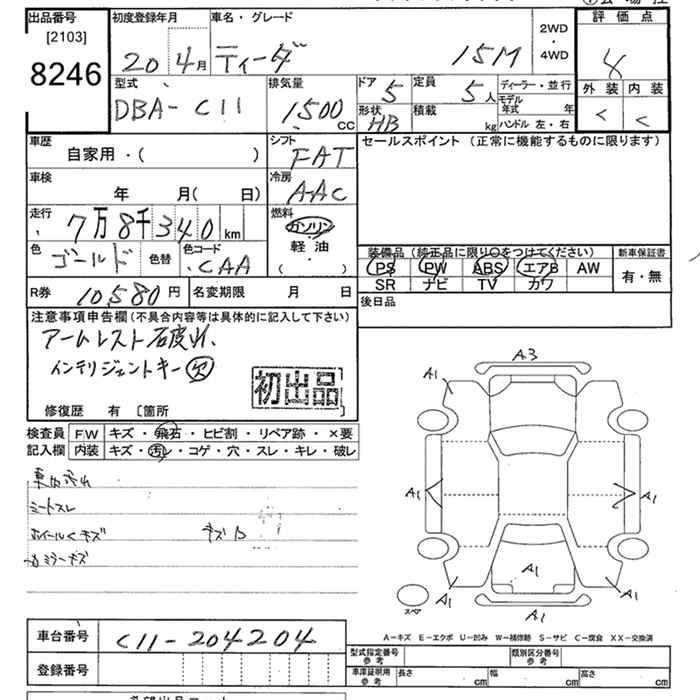 出品番号 初度登録年月 車名・グレード 評価点
[2103]
8246
20年4月 ティーダ 15M 2WD・4WD 4
型式 排気量 ドア 定員 ディーラー・並行 外装 内装
DBA-C11 1500CC 5 5人 モデル年式 年 C C
形状 HB 積載 kg ハンドル 左・右
車歴 シフト セールスポイント (正常に機能するものに限ります)
自家用・( ) FAT
車検 冷房
年 月( 日) AAC
走行 燃料
7万8千340km ガソリン
軽油
・( )
色 色替 色コード 装備品(純正品に限り○をつけてください) 新車保証書
ゴールド CAA PS PW ABS エアB AW 有・無
SR ナビ TV カワ
R券 10,580円 名変期限 月 日 後日品
注意事項申告欄(不具合内容等は具体的に記入して下さい)
アームレスト破れ
インテリジェントキー欠
初出品
修復歴 有 [箇所
検査員 FW キズ・飛石・ヒビ割・リペア跡・×要
記入欄 内装 キズ・汚レ・コゲ・穴・スレ・キレ・破レ
シートスレ
ホイールキズ キズ
ミラーキズ
A3
A1
A1 A1
A1
A1 A1
A1
スペア
A-キズ E-エクボ U-凹み W-補修跡 S-サビ C-腐食 XX-交換済
車台番号 C11-204204
登録番号
型式指定番号 参考 類別区分番号 参考
車庫証明用 参考 長さ cm 幅 cm 高さ cm